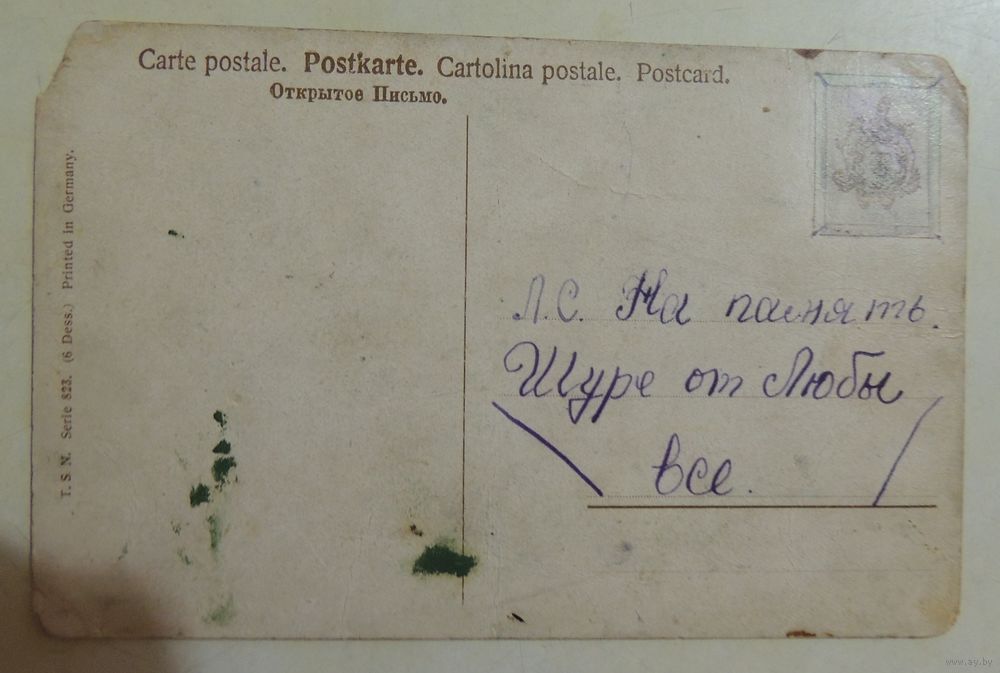 Carte postale. Postkarte. Cartolina postale. Postcard.
Открытое Письмо.
T. S. N. Serie 823. (6 Dess.) Printed in Germany.
Л.С. На память.
Шуре от Любы
все.
www.ay.by